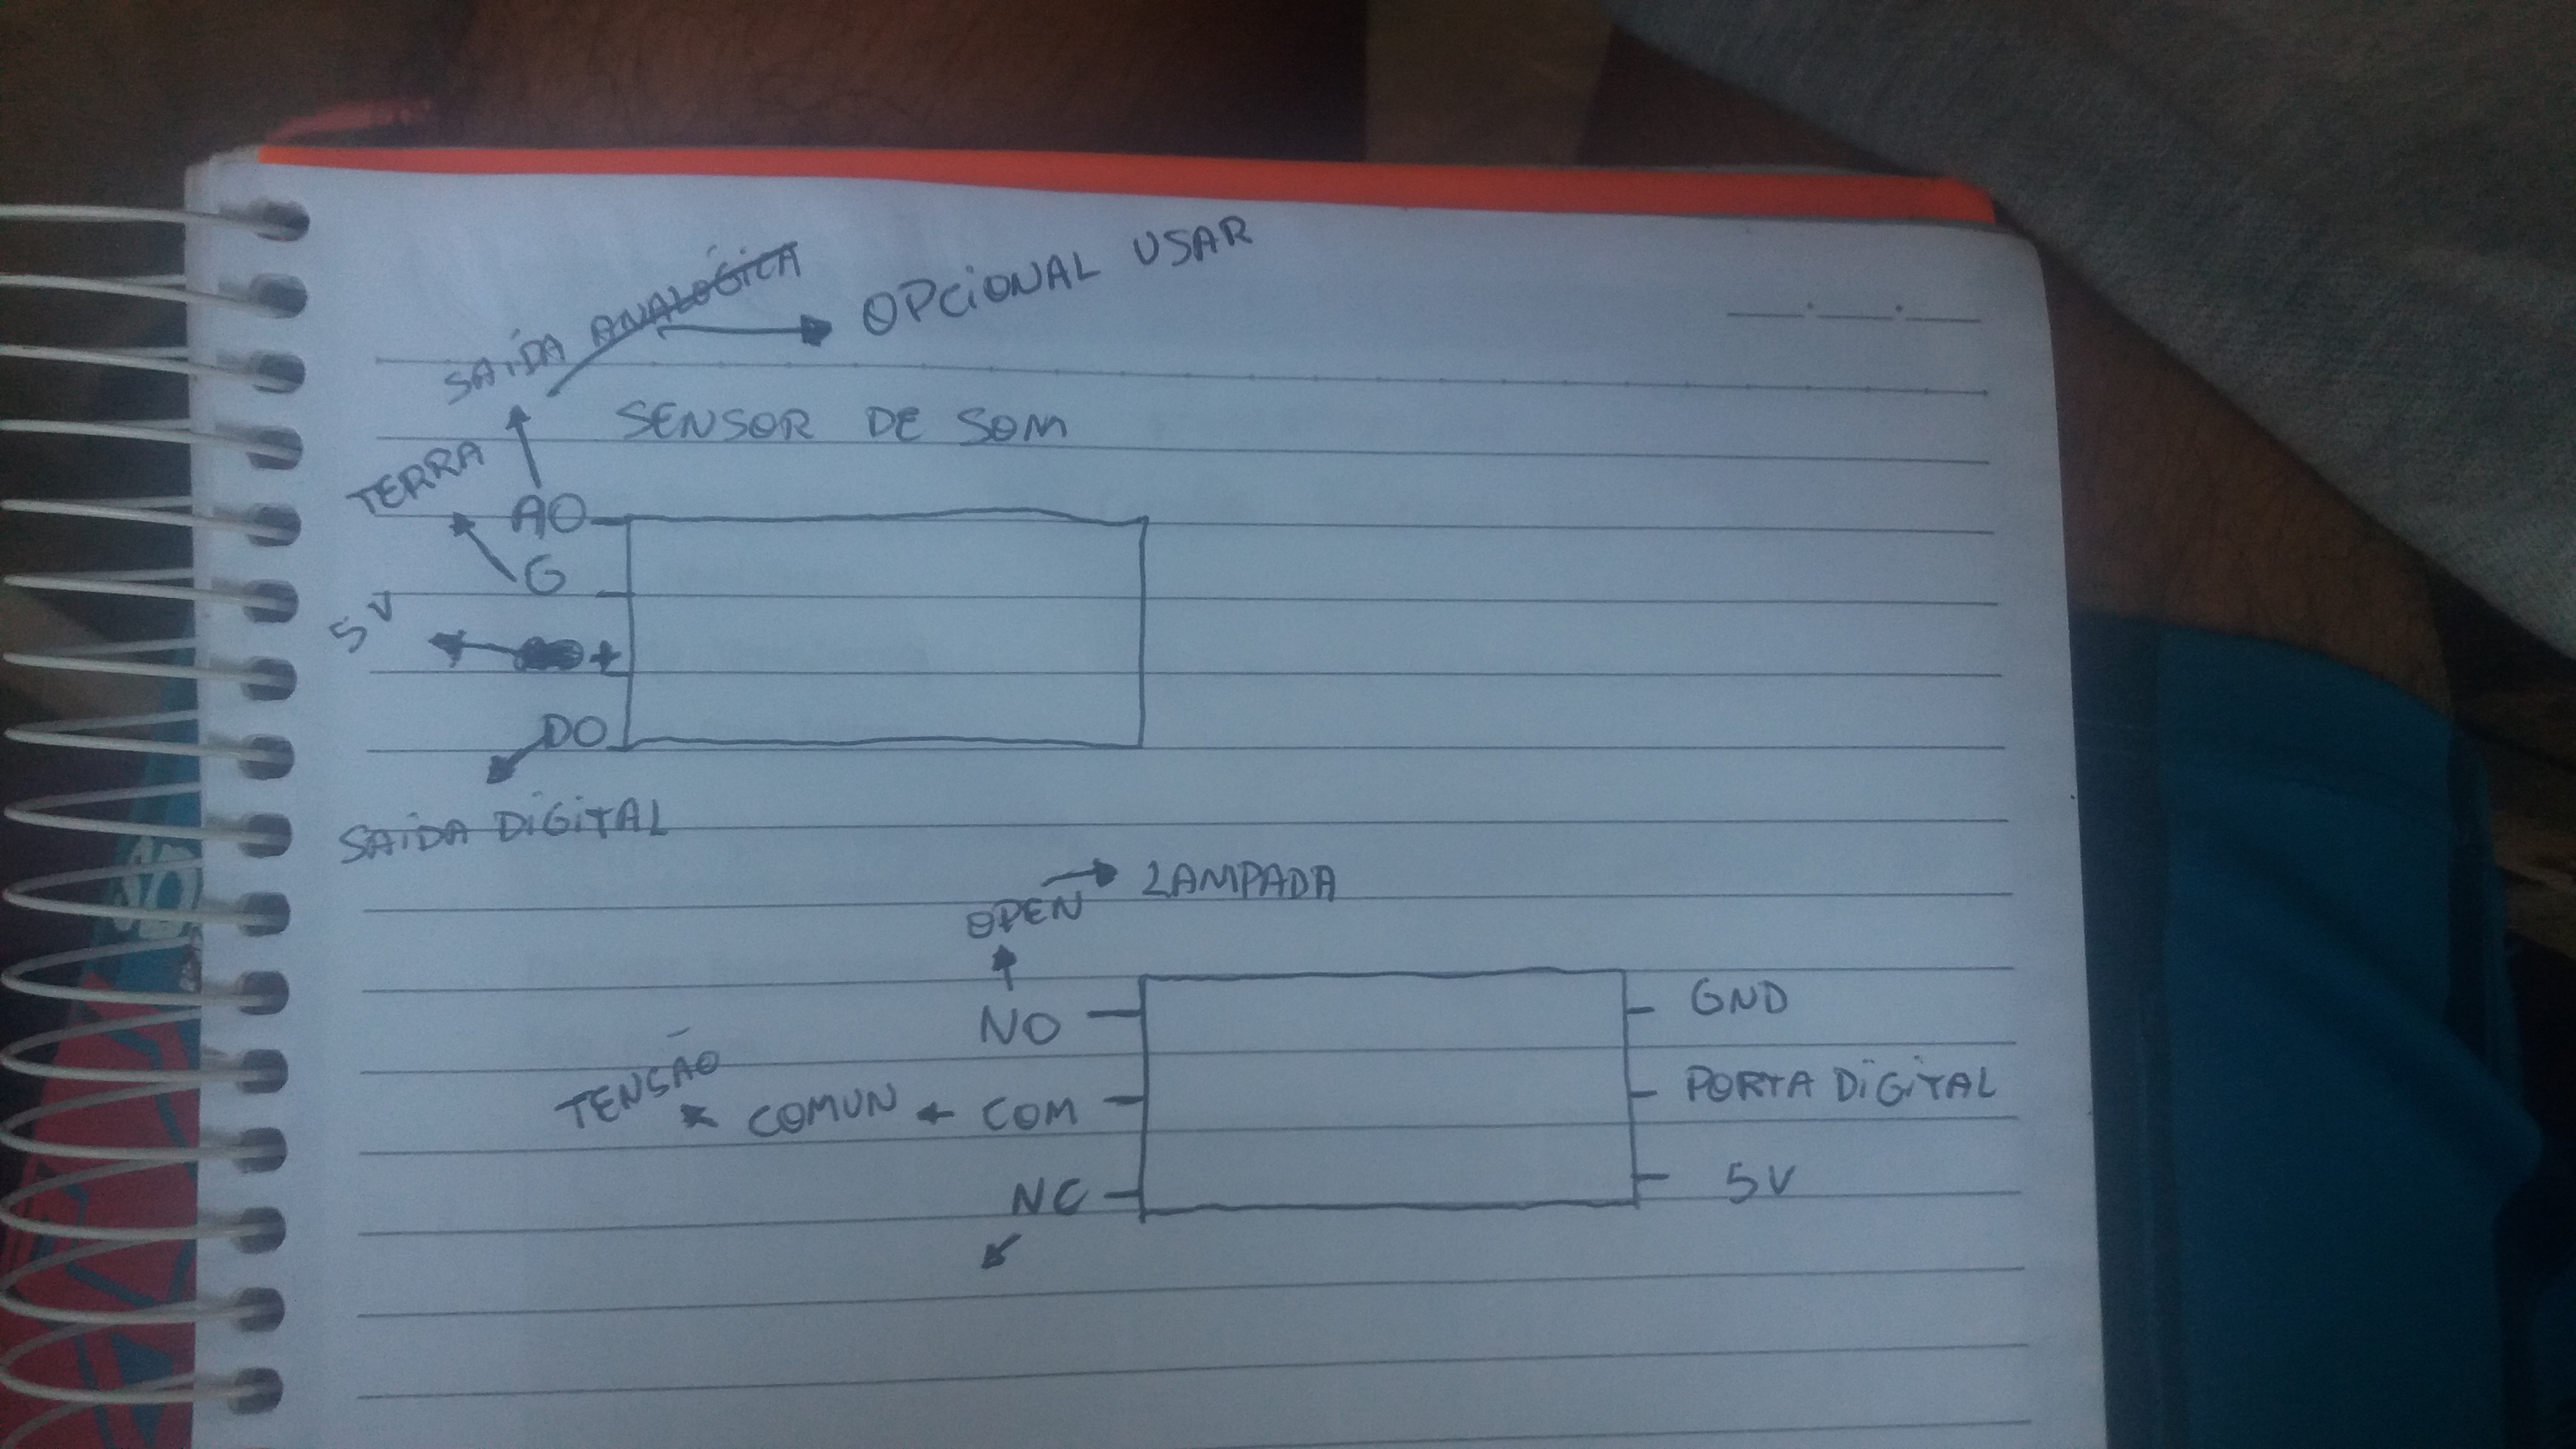 SAÍDA ANALÓGICA → OPCIONAL USAR
SENSOR DE SOM
TERRA
AO
G
5V
+
DO
SAÍDA DIGITAL
OPEN → LAMPADA
NO
GND
TENSÃO
COMUN ← COM
PORTA DIGITAL
NC
5V